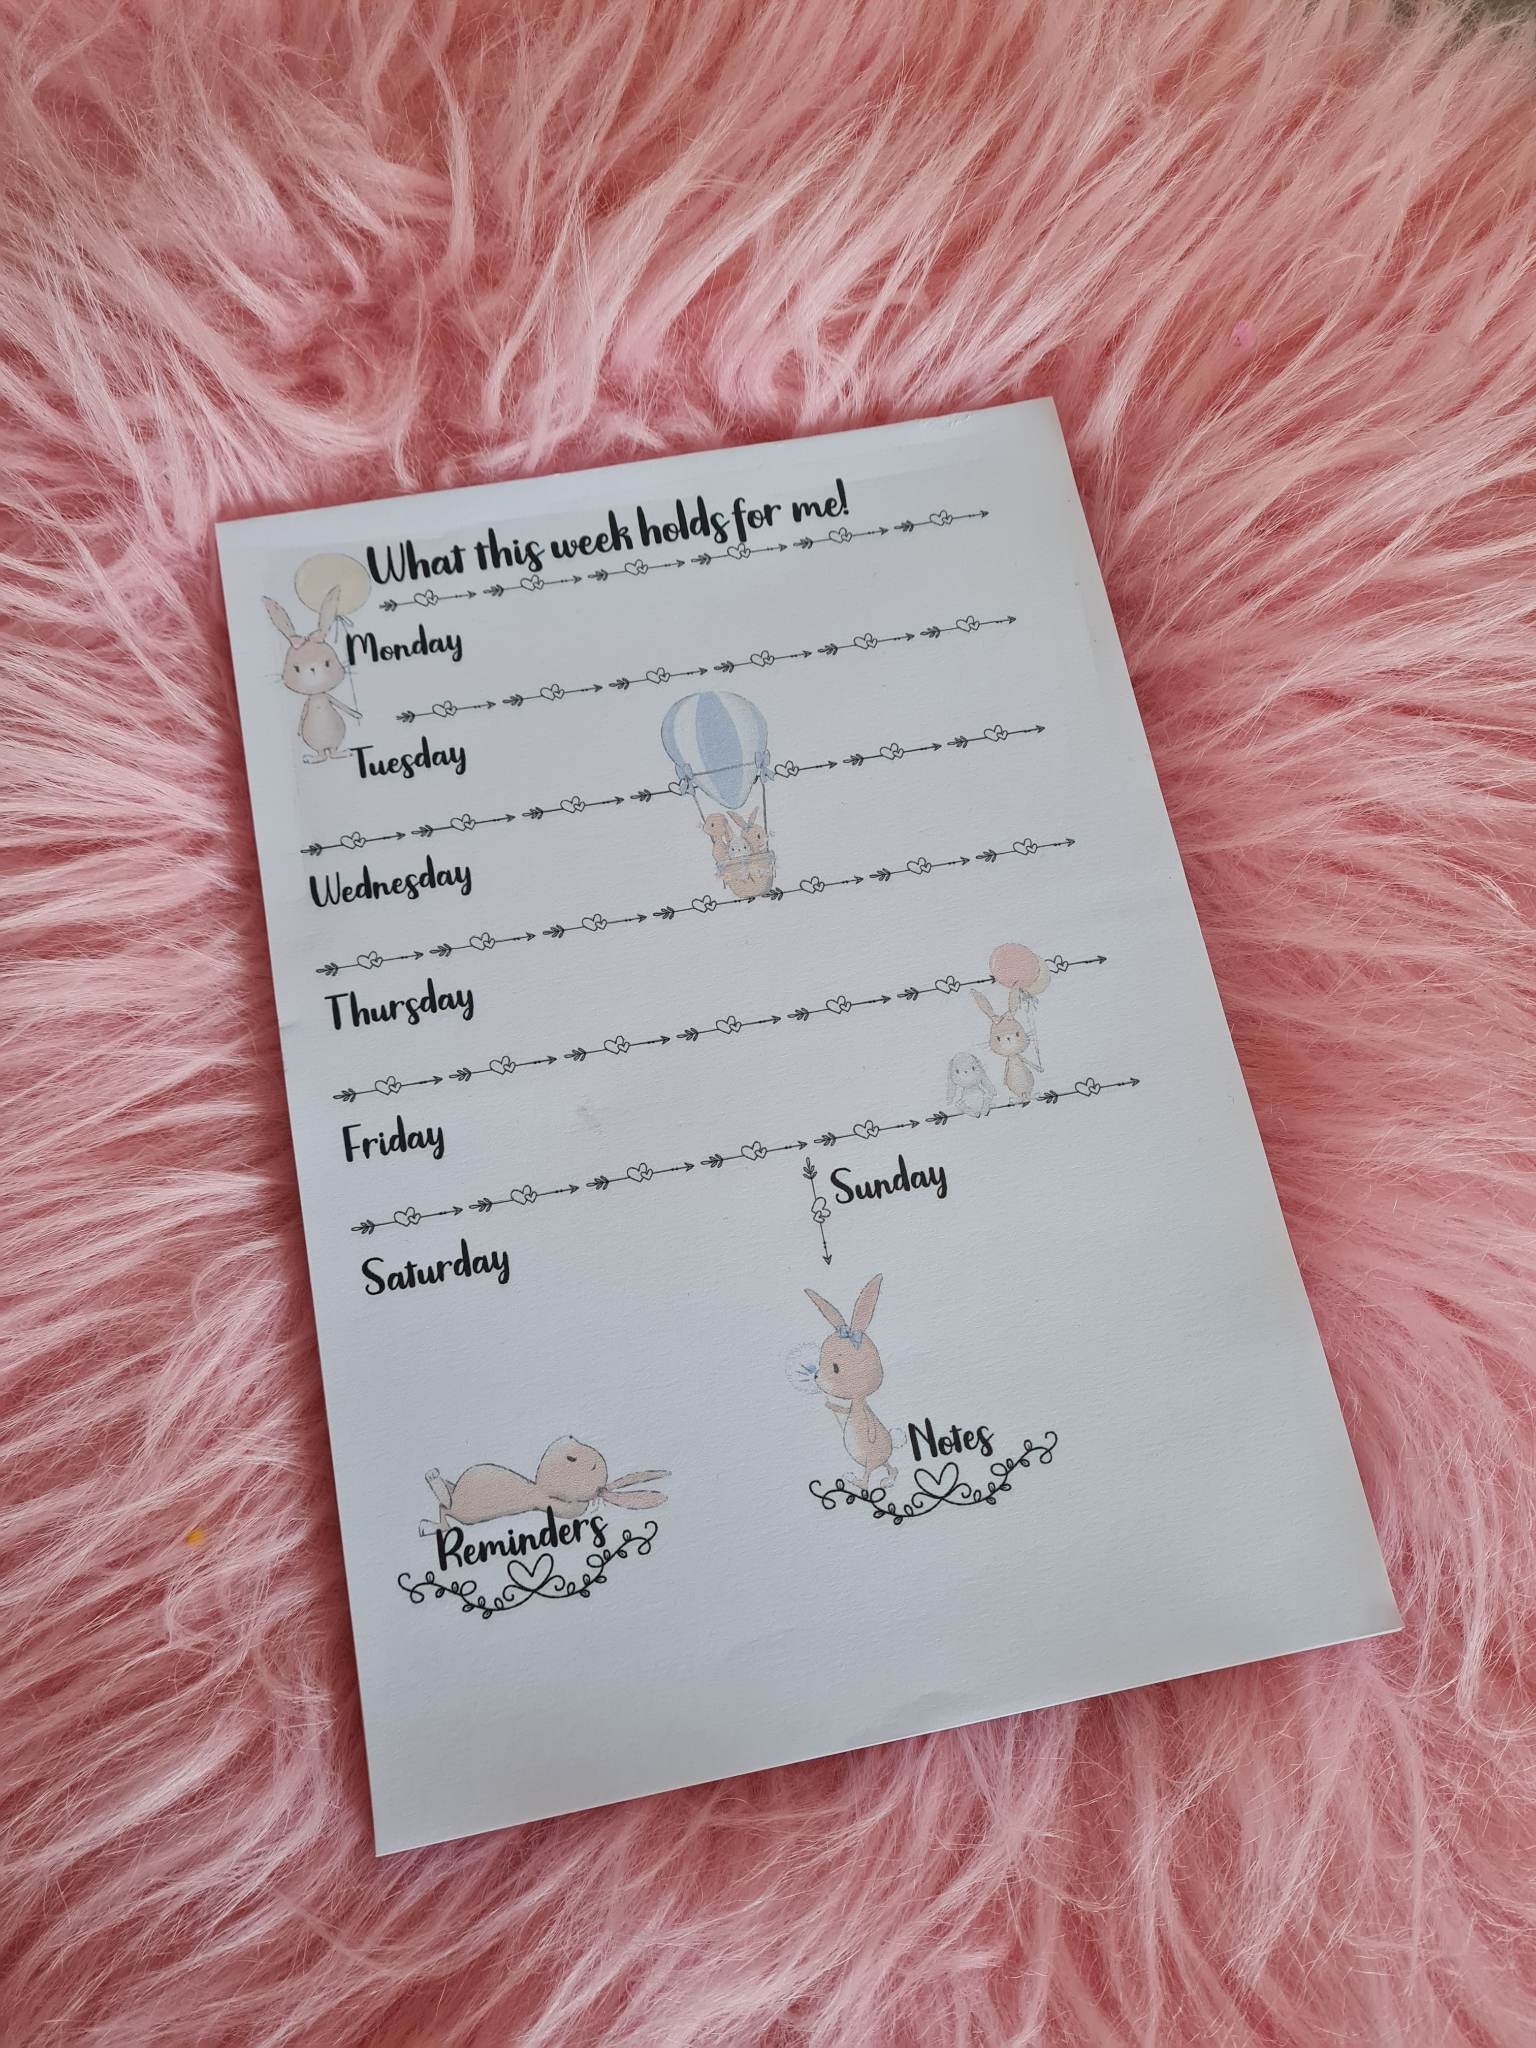 What this week holds for me!
Monday
Tuesday
Wednesday
Thursday
Friday
Saturday
Sunday
Notes
Reminders